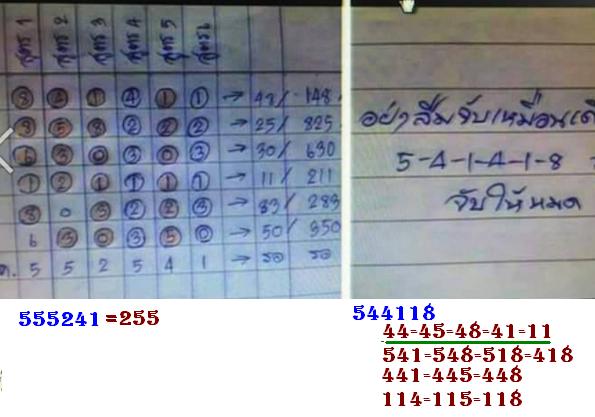 สูตร 1 สูตร 2 สูตร 3 สูตร 4 สูตร 5 สูตร 6
8 2 1 4 1 1 → 42/ 148
8 5 8 2 2 2 → 25/ 825
6 3 0 3 0 3 → 30/ 630
1 2 1 1 1 1 → 11/ 211
8 0 3 2 2 3 → 83/ 283
6 3 0 3 5 0 → 50/ 350
5 5 2 5 4 1 → รอ รอ
555241 =255
อย่าลืมจับเหมือนเดิ
5-4-1-4-1-8
จับให้หมด
544118
44=45=48=41=11
541=548=518=418
441=445=448
114=115=118